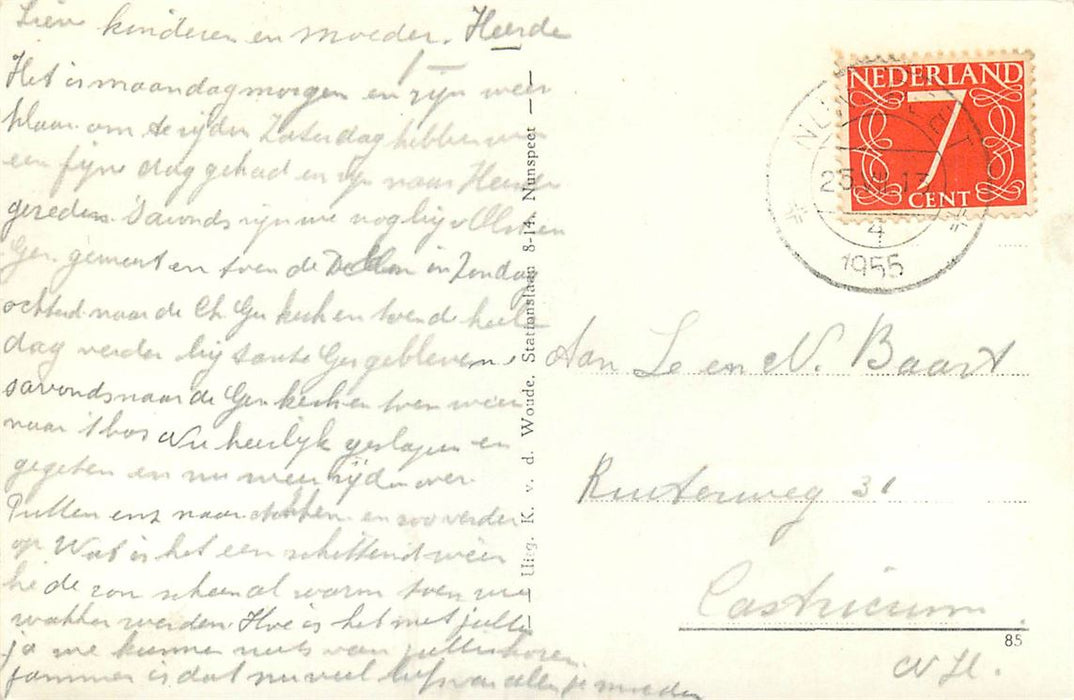 Lieve kinderen en moeder. Heerde
Het is maandagmorgen en zijn weer
klaar om te rijden Zaterdag hebben we
een fijne dag gehad en zijn naar Heerde
gereden. 'Savonds zijn we nog bij v Olsten
Ger. geweest en toen de en Zondag
ochtend naar de Ch Ger kerk en toen de heele
dag verder bij tante Ger gebleven en
savonds naar de Ger kerk en toen weer
naar 't bos Nu heerlijk geslapen en
gegeten en nu weer rijden over
Putten enz naar en zoo verder
op Wat is het een schittend weer
hé de zon scheen al warm toen we
wakker werden. Hoe is het met jullie
ja we kunnen niets van jullie horen.
jammer is dat nu veel liefs van allen je moeder
Uitg. K. v. d. Woude, Stationslaan 8-14, Nunspeet
NEDERLAND
7
CENT
25 13
4
1955
Aan Le en N. Baart
Ruiterweg 31
Castricum
85
N H.